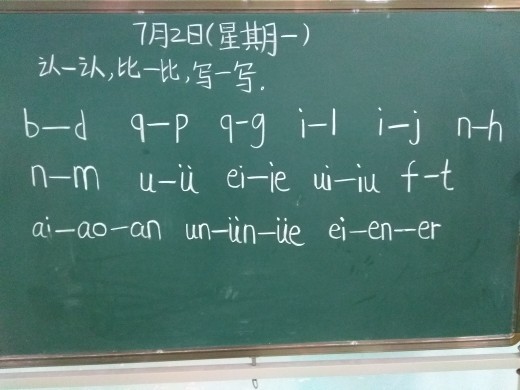 7月2日(星期一)
认一认,比一比,写一写.
b—d q—p q-g i-l i-j n-h
n—m u-ü ei-ie ui-iu f-t
ai—ao-an un-ün-üe ei-en--er